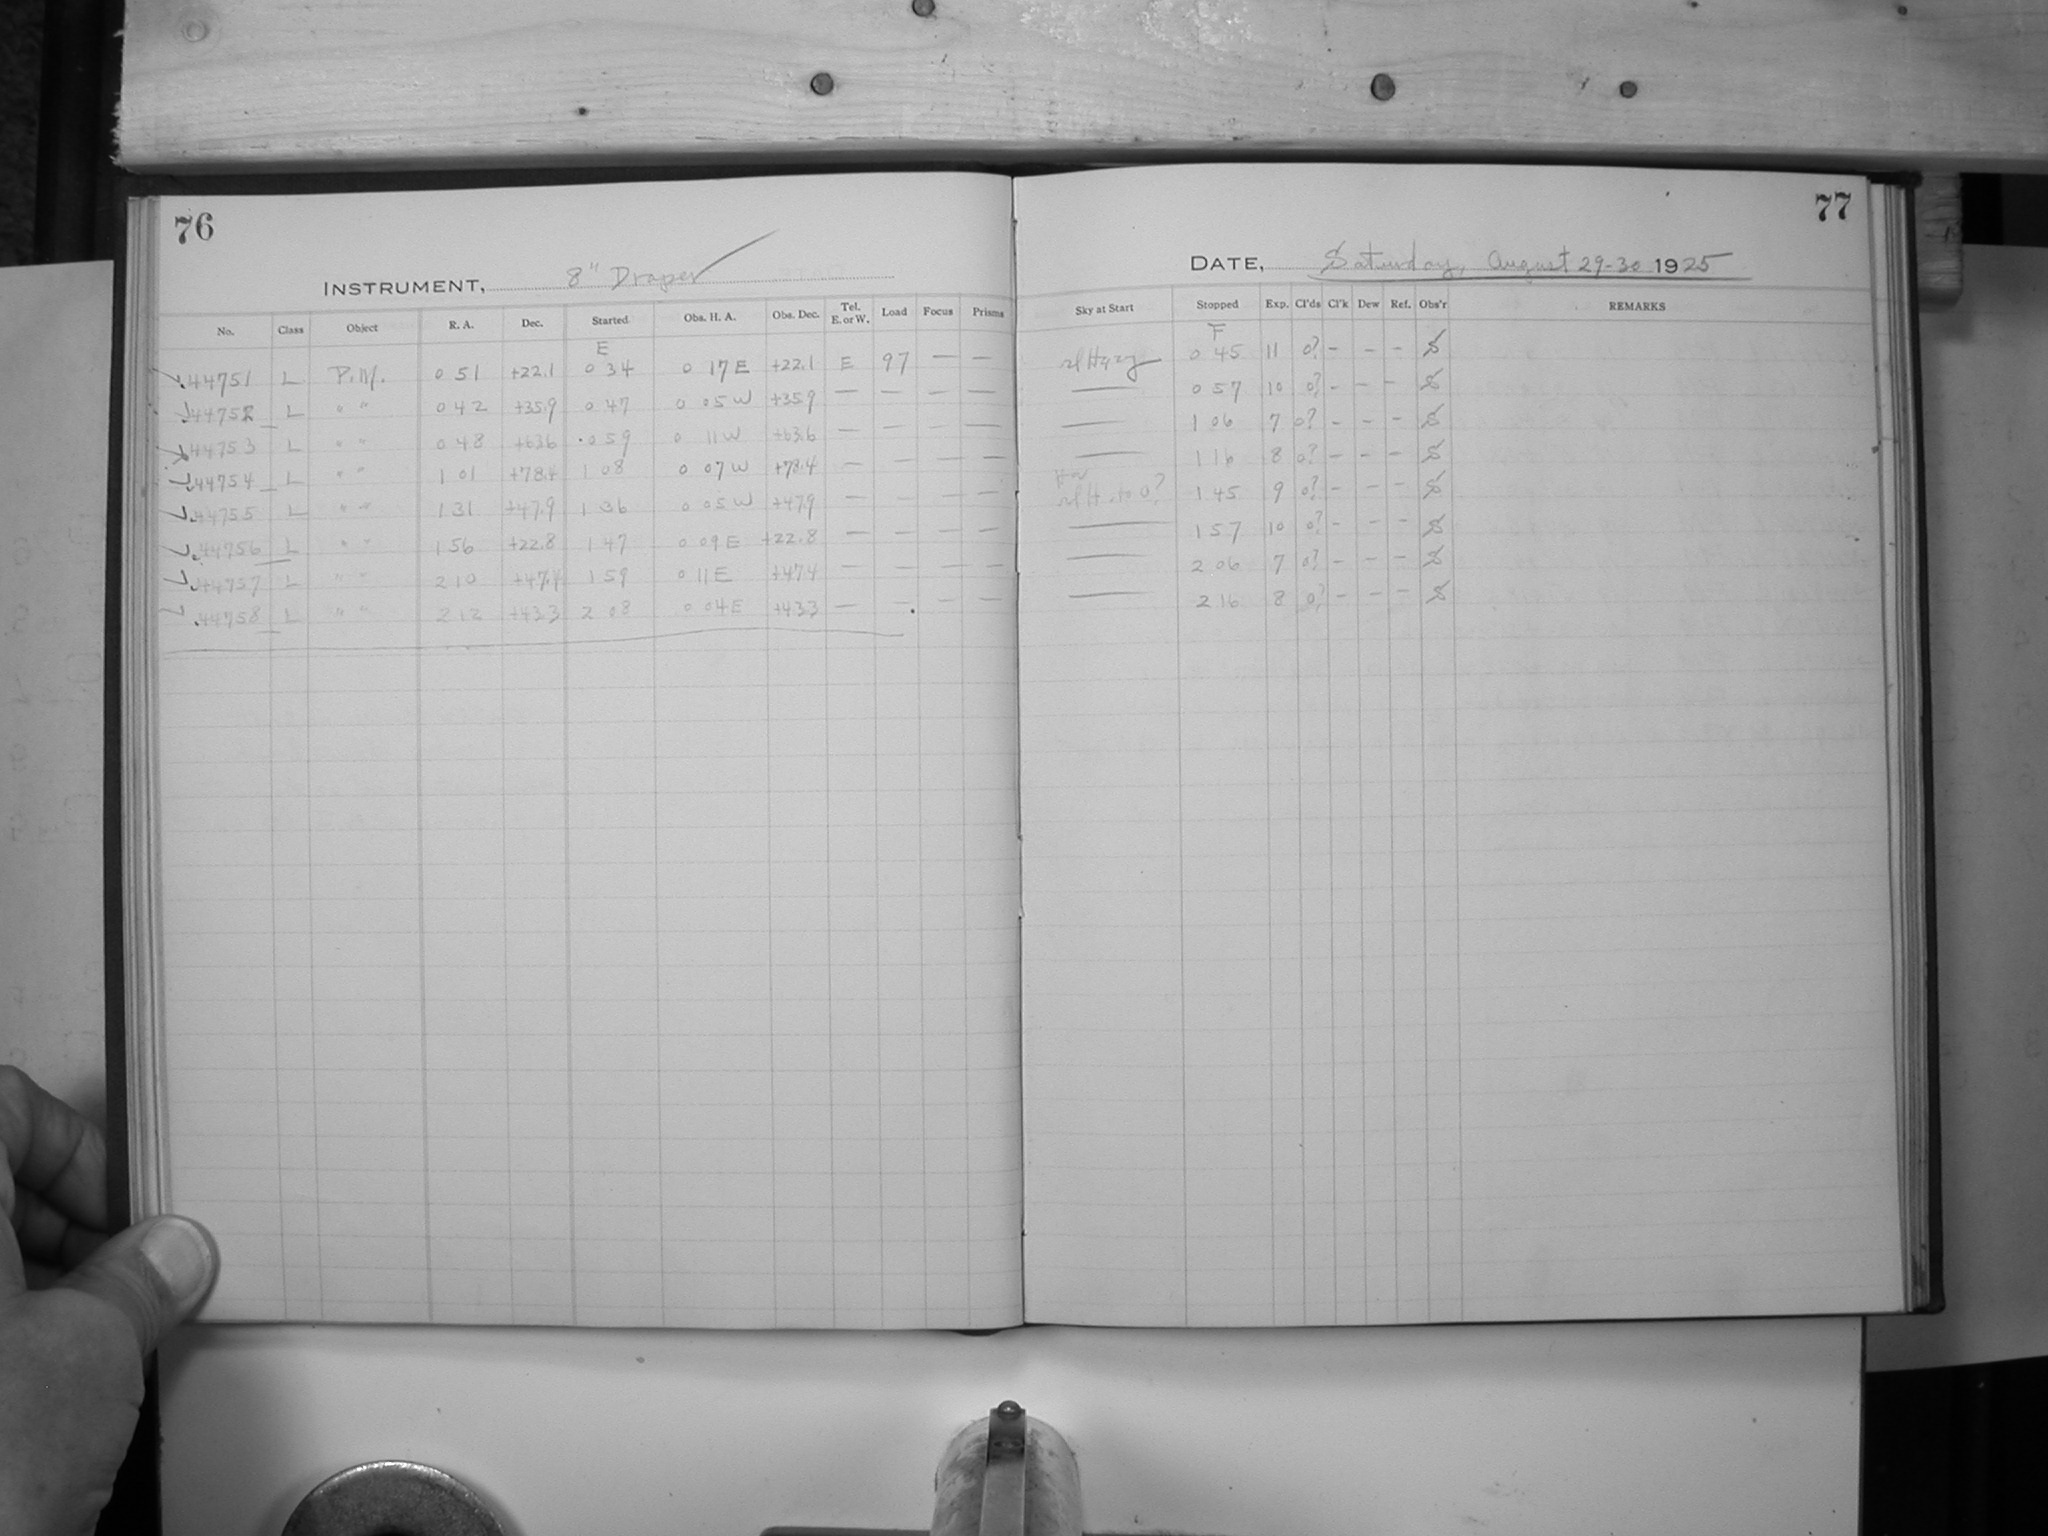 76
INSTRUMENT, 8" Draper
No. Class Object R. A. Dec. Started Obs. H. A. Obs. Dec. Tel. E. or W. Load Focus Prisms
E
44751 L 0 51 +22.1 0 34 0 17 E +22.1 E 97 — —
44752 L " " 0 42 +35.9 0 47 0 05 W +35.9 — — — —
44753 L " " 0 48 +63.6 0 59 0 11 W +63.6 — — — —
44754 L " " 1 01 +78.4 1 08 0 07 W +78.4 — — — —
44755 L " " 1 31 +47.9 1 36 0 05 W +47.9 — — — —
44756 L " " 1 56 +22.8 1 47 0 09 E +22.8 — — — —
44757 L " " 2 10 +47.4 1 59 0 11 E +47.4 — — — —
44758 L " " 2 12 +43.3 2 08 0 04 E +43.3 — — — —
77
DATE, Saturday, August 29-30 1925
Sky at Start Stopped Exp. Cl'ds Cl'k Dew Ref. Obs'r REMARKS
F
Hazy 0 45 11 0? - - - S
— 0 57 10 0? - - - S
— 1 06 7 0? - - - S
— 1 16 8 0? - - - S
1 45 9 0? - - - S
— 1 57 10 0? - - - S
— 2 06 7 0? - - - S
— 2 16 8 0? - - - S